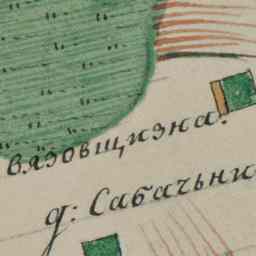 вязовщизна.
д: Сабачьни